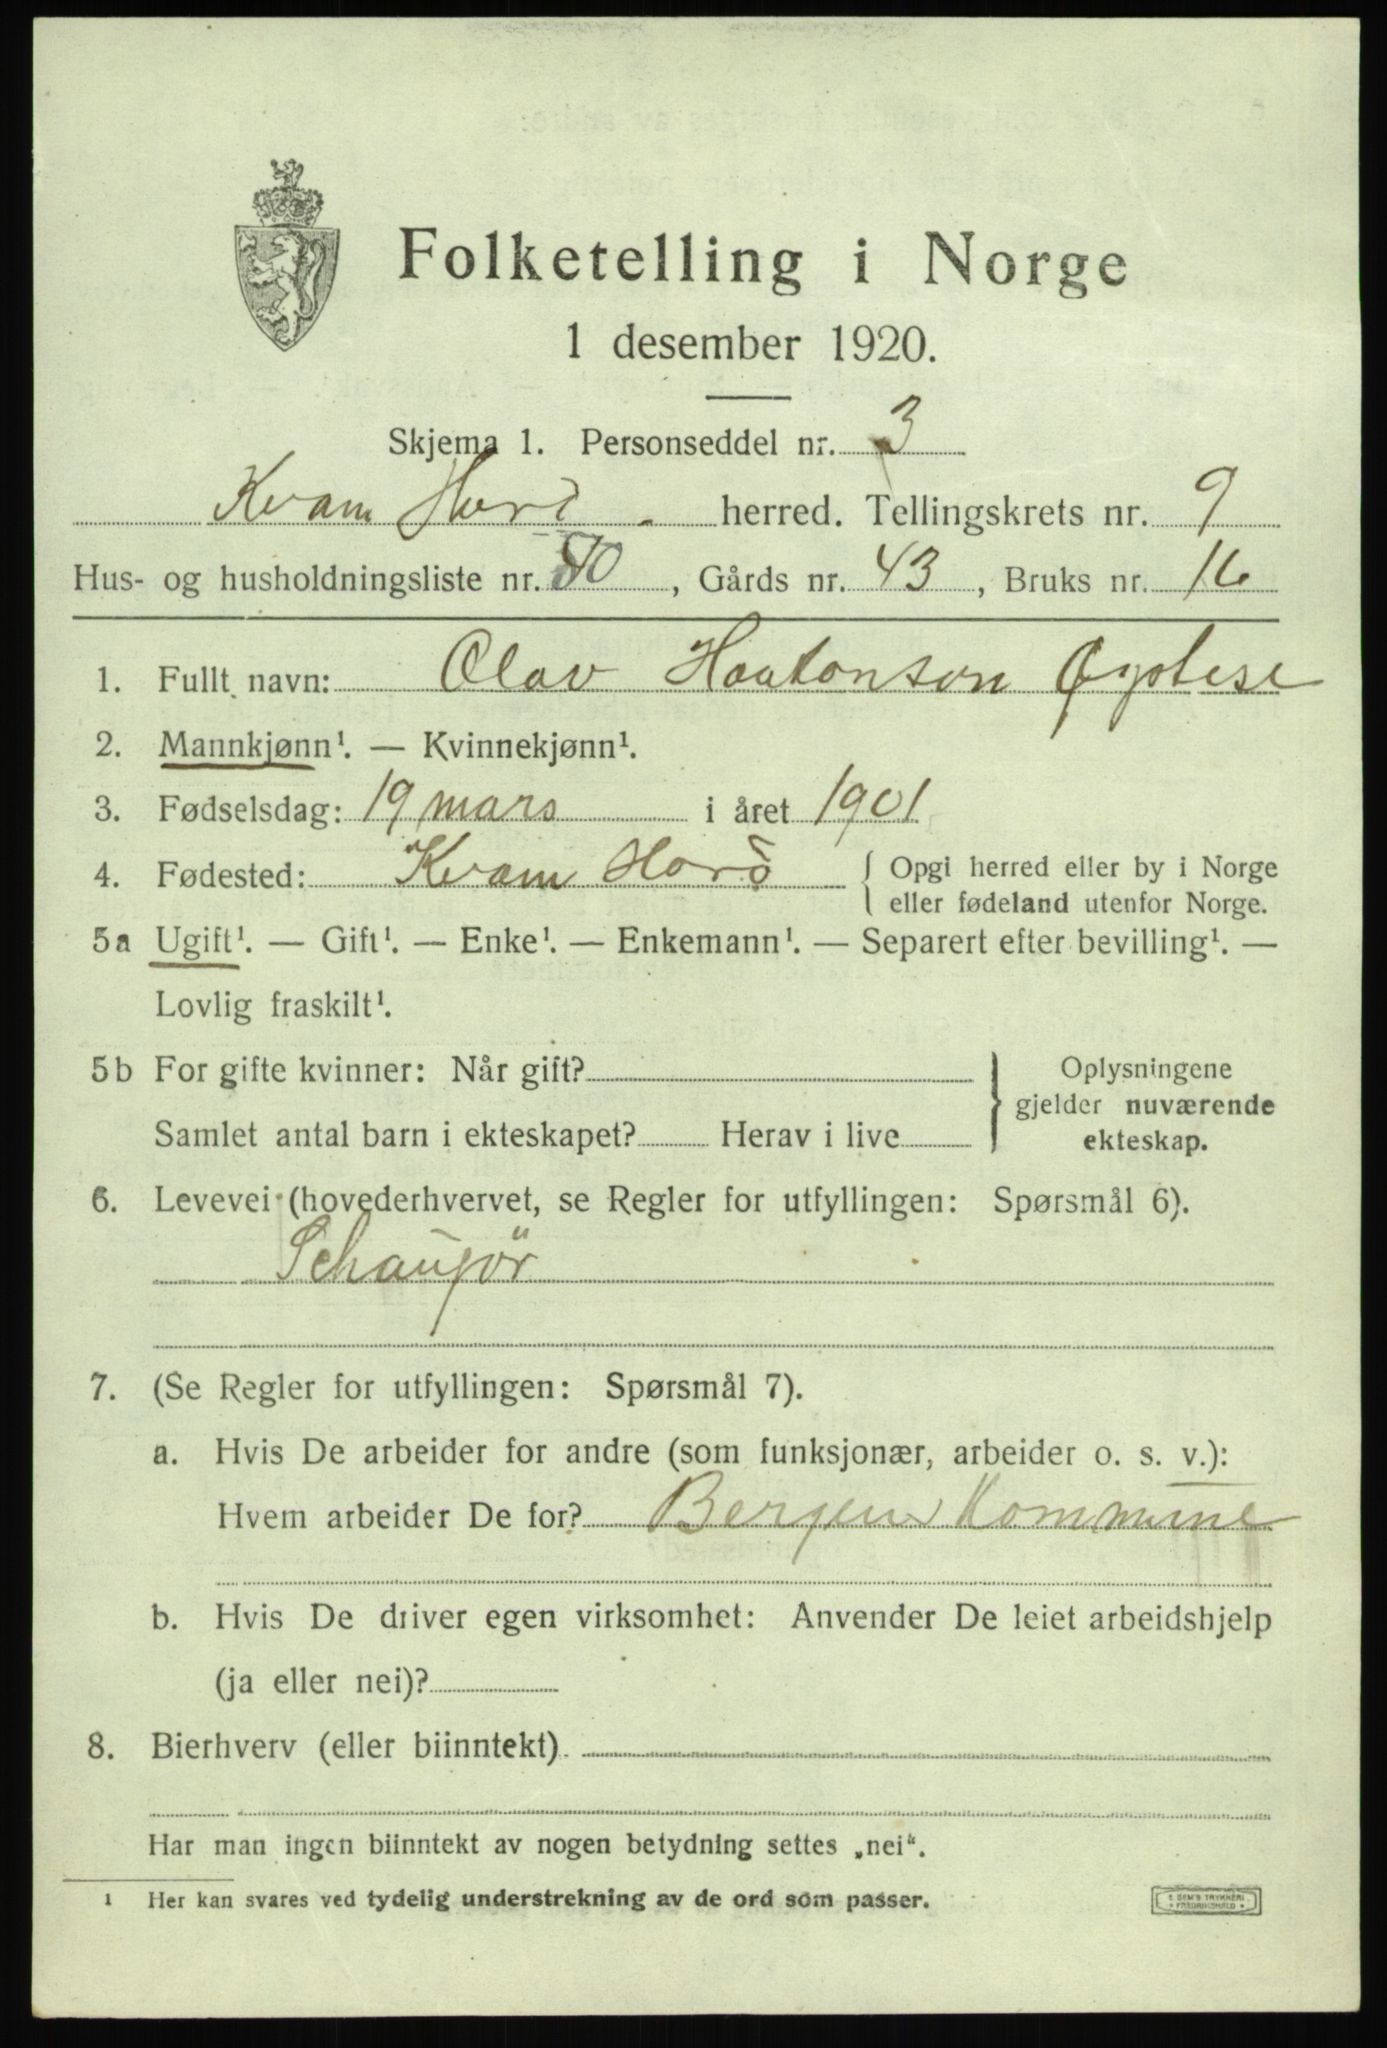 Folketelling i Norge
1 desember 1920.
Skjema 1. Personseddel nr. 3
Kvam Hord. herred. Tellingskrets nr. 9
Hus- og husholdningsliste nr. 80, Gårds nr. 43, Bruks nr. 16
1. Fullt navn: Olav Haakonson Øystese
2. Mannkjønn¹. — Kvinnekjønn¹.
3. Fødselsdag: 19 mars i året 1901
4. Fødested: Kvam Hord { Opgi herred eller by i Norge
eller fødeland utenfor Norge.
5a Ugift¹. — Gift¹. — Enke¹. — Enkemann¹. — Separert efter bevilling¹. —
Lovlig fraskilt¹.
5b For gifte kvinner: Når gift? } Oplysningene
gjelder nuværende
Samlet antal barn i ekteskapet? Herav i live
ekteskap.
6. Levevei (hovederhvervet, se Regler for utfyllingen: Spørsmål 6).
Schauför
7. (Se Regler for utfyllingen: Spørsmål 7).
a. Hvis De arbeider for andre (som funksjonær, arbeider o. s. v.):
Hvem arbeider De for? Bergens Kommune
b. Hvis De driver egen virksomhet: Anvender De leiet arbeidshjelp
(ja eller nei)?
8. Bierhverv (eller biinntekt)
Har man ingen biinntekt av nogen betydning settes „nei“.
1 Her kan svares ved tydelig understrekning av de ord som passer.
E SEM'S TRYKKERI
FREDRIKSHALD